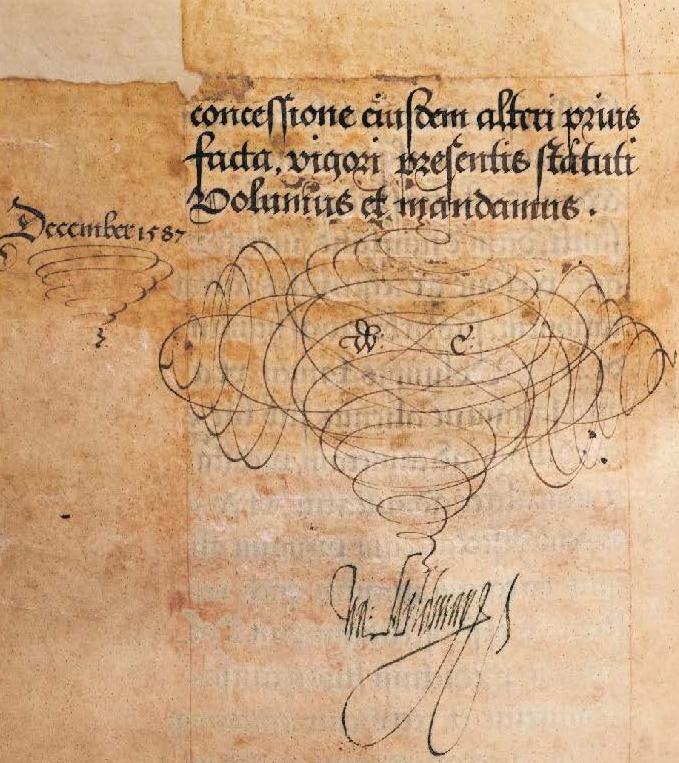 concessione eiusdem alteri prius
facta, vigori presentis statuti
Volumus et mandamus.
December 1587
W C